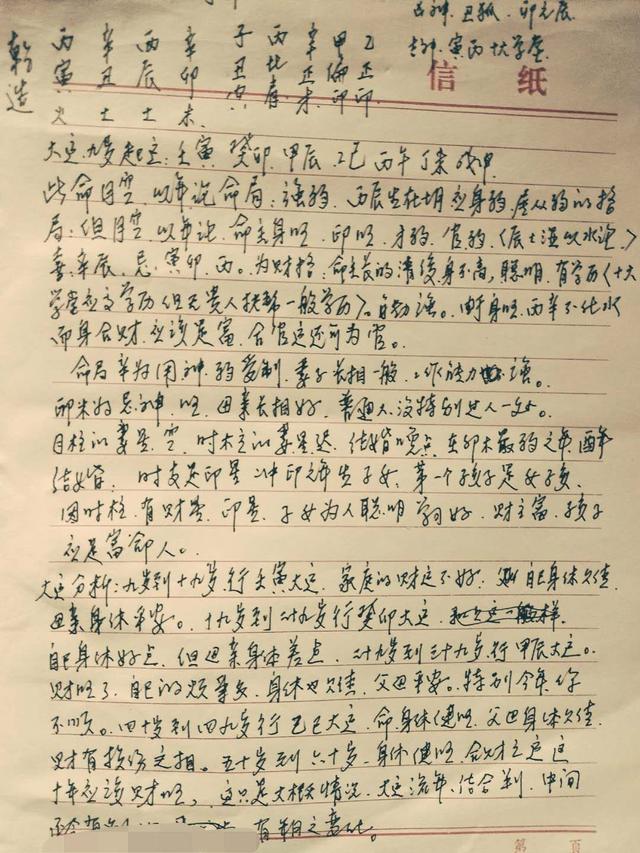 吉神 丑 卯 元辰
乾造
丙 辛 丙 辛 子 丙 辛 甲 乙
寅 丑 辰 卯 丑 比 正 偏 正
印 印
火 土 土 木
吉神 寅 丙 大学堂
信 纸
大运 九岁起运:壬寅 癸卯 甲辰 乙巳 丙午 丁未 戊申
此命日空 以年论命局:强弱 丙辰生在丑月应身弱 应从弱的格
局;但日空 以年论 命主身旺 印旺 才弱 官弱(辰土湿以水论)
喜辛辰 忌 寅卯 丙。为财格 命主长的清俊身不高,聪明 有学历(十大
学堂应文学历但无贵人扶帮一般学历)。能动强。由于身旺 丙辛不化水
而身合财 应该是富 合官运还可为官。
命局辛为用神弱受制 妻子长相一般 工作能力强。
卯木为忌神 旺 母亲长相好 普通人 没特别过人之处。
日柱的妻星 空 时柱的妻星迟 结婚晚点 在卯木最弱之年 酉年
结婚。时支是印星 冲印之年生子女 第一个孩子是女孩
因时柱 有财星 印星 子女为人聪明 学习好 财主富 孩子
应是富命人。
大运分析:九岁到十九岁 行壬寅大运 家庭的财运不好 自己身体欠佳
母亲身体平安。十九岁到廿九岁行癸卯大运
自己身体好点 但母亲身体差点 廿九岁到三十九岁行甲辰大运。
财旺了 自己的烦事多 身体也欠佳 父母平安。特别今年你
不顺。四十岁到四九岁行乙巳大运 命身体健旺 父母身体欠佳
财有损伤之相。五十岁到六十岁 身体健旺 合财之运 这
十年应该财旺, 这只是大概情况 大运流年 结合判 中间
有之变化。
第 页